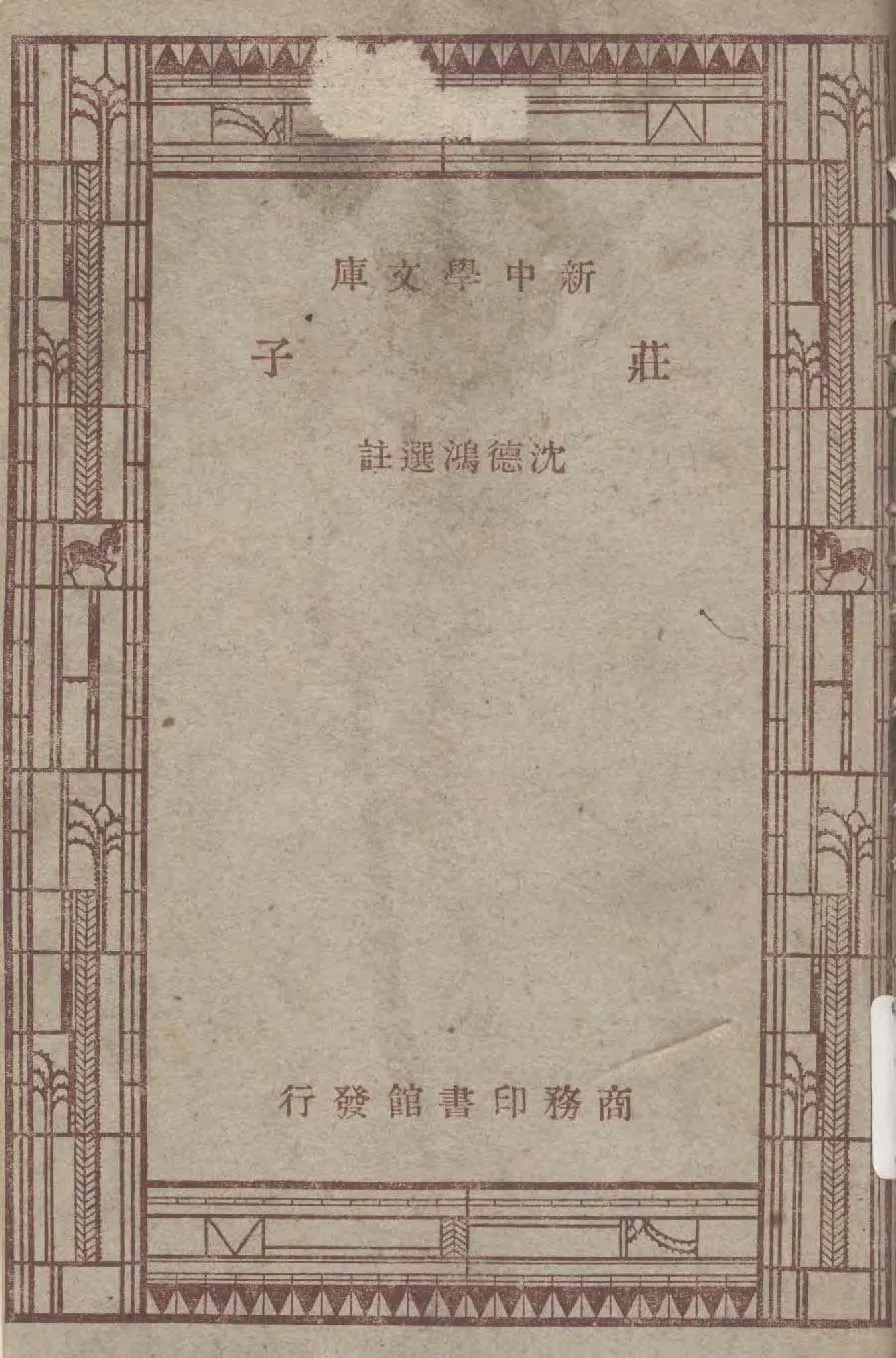 新中學文庫
莊子
沈德鴻選註
商務印書館發行